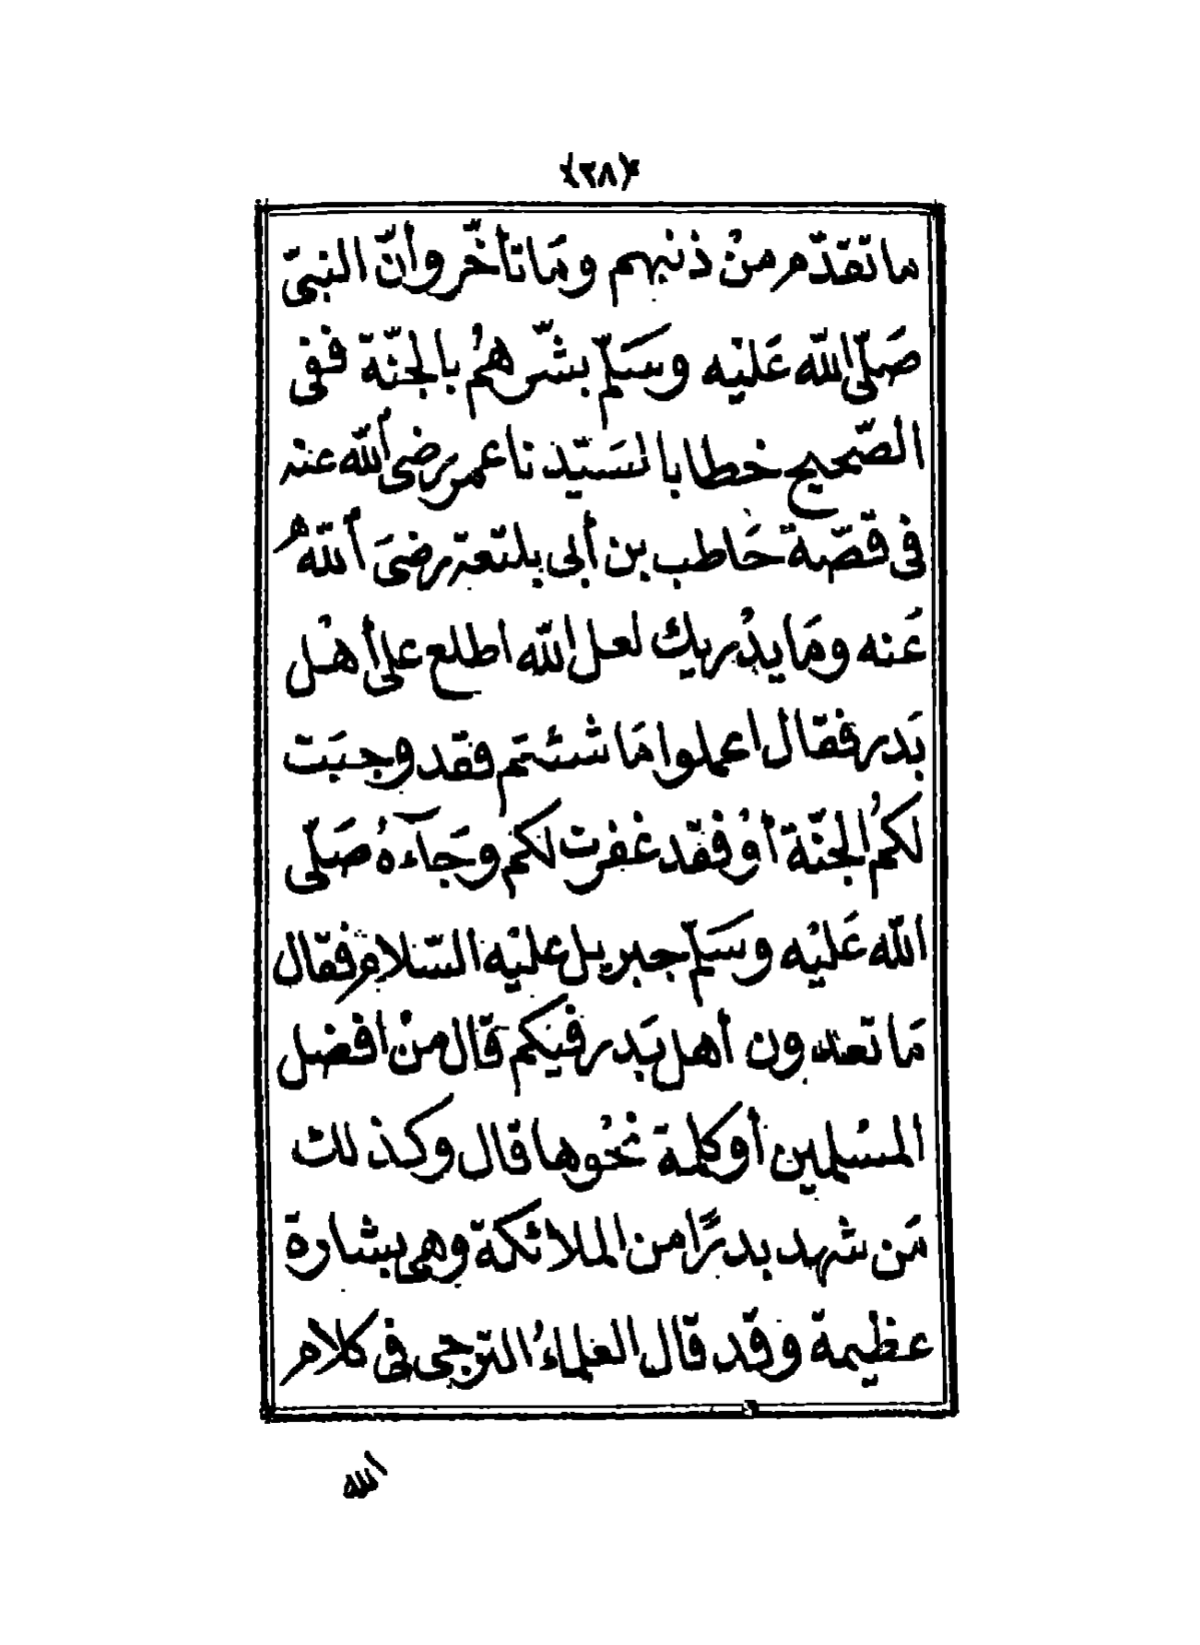 ﴿٣٨﴾
ما تقدّم منْ ذنبهم ومَا تأخّر وأنّ النبىّ
صَلّى اللّه عَليْه وسَلّم بشّرهمُ بالجنّة ففى
الصّحيح خطابا لسَيّدنا عمر رضى اللّه عنه
فى قصّة حَاطب بن أبى بلتعة رضىَ اللّهُ
عَنه ومَا يدْريك لعل اللّه اطلع على أهْل
بَدر فقال اعملوا مَا شئتم فقد وجبَت
لكمُ الجنّة أوْ فقد غفرت لكم وجَآءهُ صَلّى
اللّه عَليْه وسَلّم جبريل عليْه السّلام فقال
مَا تعدون أهل بَدر فيَكم قال منْ افضل
المسْلمين أو كلمة نحْوها قال وكذلك
مَن شهد بدرًا من الملائكة وهى بشارة
عظيمة وقد قال العلماءُ الترجى فى كلام
الله